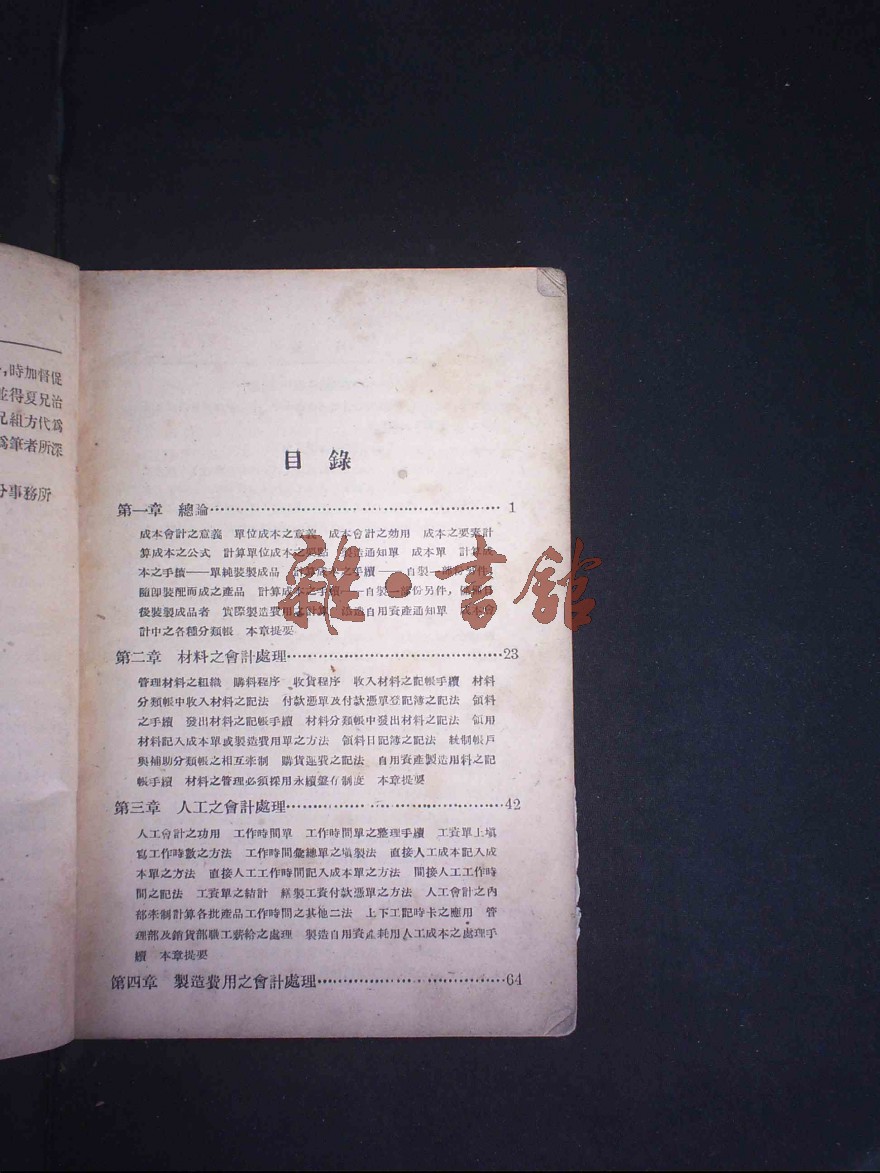 ,時加督促
並得夏兄治
兄組方代爲
爲筆者所深
分事務所
目錄
第一章 總論 1
成本會計之意義 單位成本之意義 成本會計之効用 成本之要素計
算成本之公式 計算單位成本之 製造通知單 成本單 計算成
本之手續——單純裝製成品 計算成本之手續——自製一部份另件,
隨卽裝配而成之產品 計算成本之手續——自製一部份另件,
後裝製成品者 實際製造費用之計算 自用資產通知單 成本會
計中之各種分類帳 本章提要
第二章 材料之會計處理 23
管理材料之組織 購料程序 收貨程序 收入材料之記帳手續 材料
分類帳中收入材料之記法 付款憑單及付款憑單登記簿之記法 領料
之手續 發出材料之記帳手續 材料分類帳中發出材料之記法 領用
材料記入成本單或製造費用單之方法 領料日記簿之記法 統制帳戶
與補助分類帳之相互牽制 購貨運費之記法 自用資產製造用料之記
帳手續 材料之管理必須採用永續盤存制度 本章提要
第三章 人工之會計處理 42
人工會計之功用 工作時間單 工作時間單之整理手續 工資單上填
寫工作時數之方法 工作時間彙總單之塡製法 直接人工成本記入成
本單之方法 直接人工工作時間記入成本單之方法 間接人工工作時
間之記法 工資單之結計 編製工資付款憑單之方法 人工會計之內
部牽制計算各批產品工作時間之其他二法 上下工記時卡之應用 管
理部及銷貨部職工薪給之處理 製造自用資產耗用人工成本之處理手
續 本章提要
第四章 製造費用之會計處理 64
雜·書館